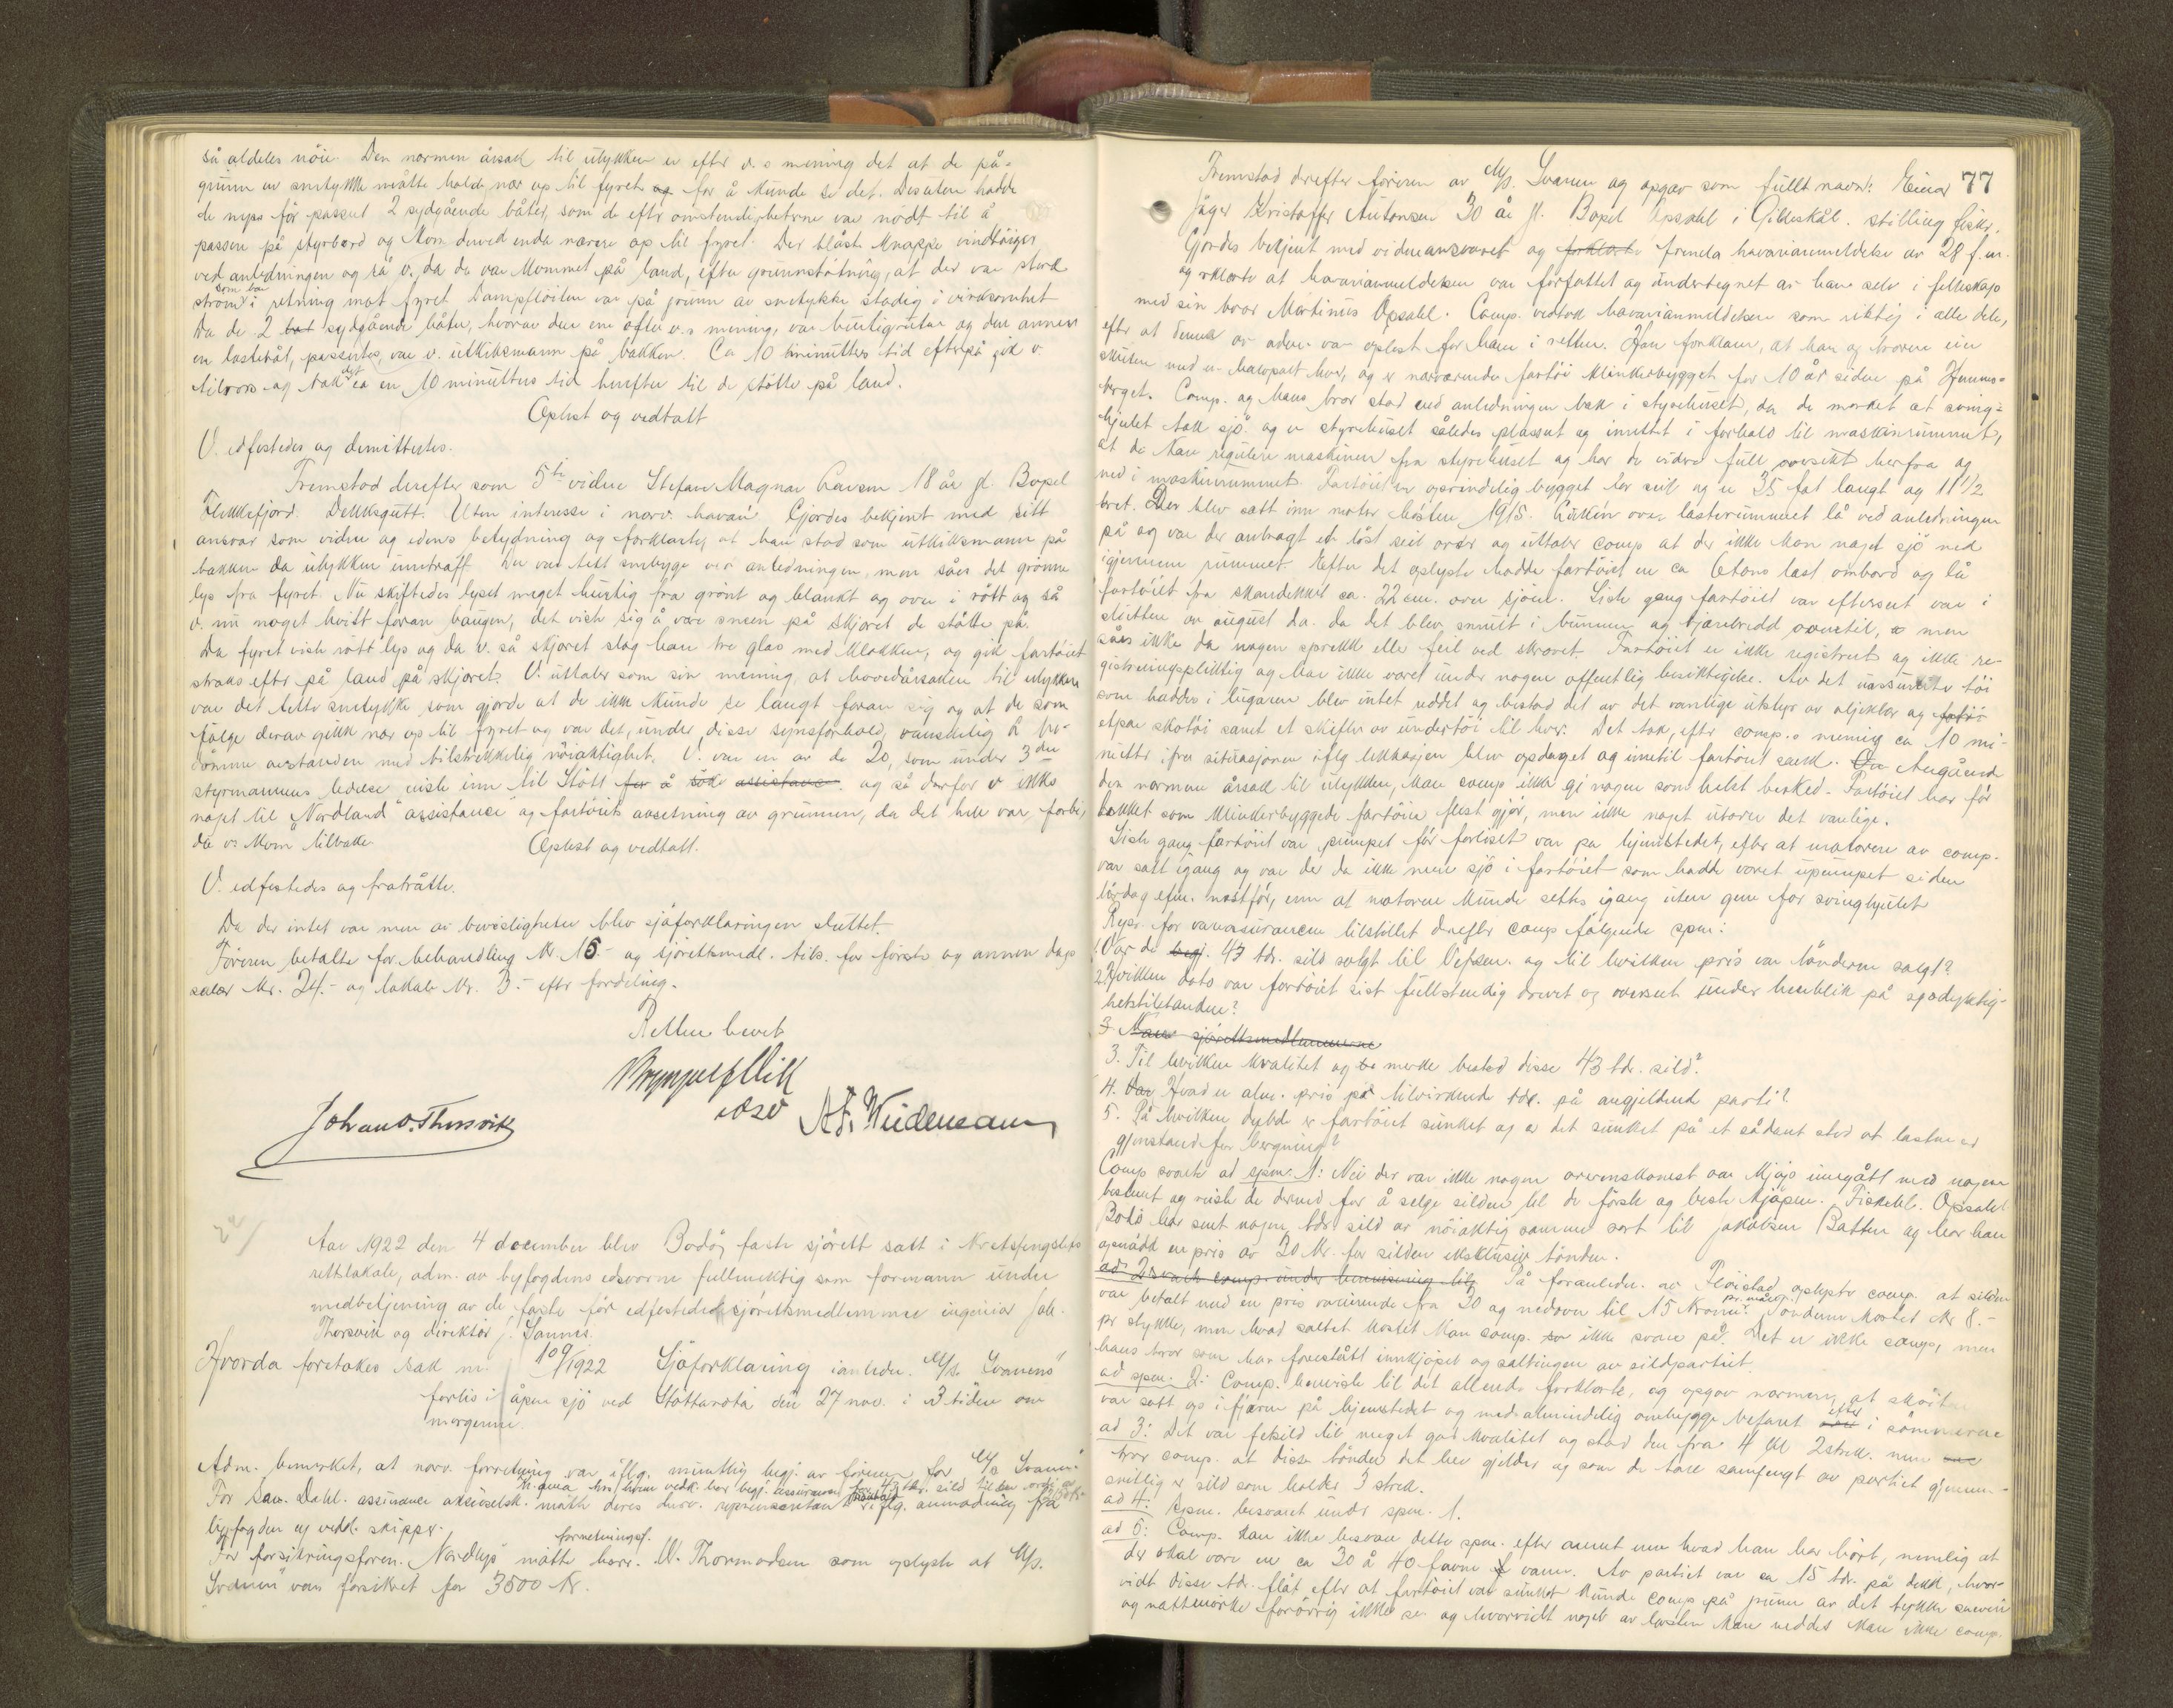 så aldeles nöie. Den nærmen årsak til ulykken er efter v.s mening det at de på-
grunn av snetykke måtte holde nær op til fyret og for å kunde se det. Desuten hadde
de nyss för passert 2 sydgående båter, som de efter omstendighetene var nödt til å
passere på styrbord og kom derved enda nærere op til fyret. Der blåste knappe vindböiger
ved anledningen og så v. da de var kommet på land, efter grunnstötning, at der var sterk
ström som bar i retning mot fyret. Dampflöiten var på grunn av snetykke stadig i virksomhet
Da de 2 båt sydgående båter, hvorav den ene efter v.s mening, var hurtigruten og den annen
en lastebåt, passertes, var v. utkiksmann på bakken. Ca 10 minutters tid efterpå gik v.
tilrors og tok det ca en 10 minutters tid herefter til de stötte på land.
Oplest og vedtatt
V. edfestedes og demittertes.
Fremstod derefter som 5te vidne Stefan Magnar Larsen 18 år gl. Bopel
Flekkefjord. Dekksgutt. Uten interesse i nærv. havari. Gjordes bekjent med sitt
ansvar som vidne og edens betydning og forklarte, at han stod som utkiksmann på
bakken da ulykken inntraff. Der var tett snebyge ved anledningen, men såes det grönne
lys fra fyret. Nu skiftedes lyset meget hurtig fra grönt og blankt og over i rött og så
v. nu noget hvitt foran baugen, det viste sig å være sneen på skjæret de stötte på.
Da fyret viste rött lys og da v. så skjæret slog han tre glas med klokken, og gik fartöiet
straks efter på land på skjæret. V. uttaler som sin mening at hovedårsaken til ulykken
var det tette snetykke som gjorde at de ikke kunde se langt foran sig og at de som
fölge derav gikk nær op til fyret og var det, under disse synsforhold, vanskelig å be-
dömme avstanden med tilstrekkelig nöiaktighet. V. var en av de 20, som under 3die
styrmannens ledelse reiste inn til Stött for å söke assistance og så derfor v ikke
noget til "Nordland" assistance og fartöiets avsetning av grunnen, da det hele var forbi,
da v. kom tilbake. Oplest og vedtatt.
V. edfestedes og fratrådte.
Da der intet var mere av bevisligheter blev sjöforklaringen sluttet.
Föreren betalte for behandling kr. 15.- og sjörettsmedl. tils. for förste og annen dags
salær kr. 24.- og lokale kr. 3.- efter fordeling.
Retten hevet
Johan O. Thorsvik
edsv
A.F. Weidemann
Aar 1922 den 4 december blev Bodö faste sjörett satt i Kretsfengslets
rettslokale, adm. av byfogdens edsvorne fullmektig som formann under
medbetjening av de faste för edfestede sjörettsmedlemmer ingeniör Joh.
Thorsvik og direktör J. Sannes.
Hvorda foretokes sak nr. 109/1922 Sjöforklaring i anledn. M/s. "Svanens"
forlis i åpen sjö ved Stöttværöta den 27 nov. i 3 tiden om
morgenen.
Adm. bemerket, at nærv. forretning var iflg. muntlig begj. av föreren for M/s "Svanen"
For Søn. Dahl. assurance aktieselsk. mötte deres herv. representant iflg. anmodning fra
byfogden og vedk. skipper.
For forsikringsforen. "Nordlys" mötte forretningsf. herr. W. Thormodsen som oplyste at M/s.
"Svanen" var forsikret for 3500 kr.
77
Fremstod derefter föreren av M/s. Svanen og opgav som fullt navn: Einar
Jäger Kristoffer Antonsen 30 år gl. Bopel Opsahl i Gilleskål. stilling fisker.
Gjordes bekjent med vidneansvaret og forklarte fremla havarianmeldelse av 28 f.m.
og erklærte at havarianmeldelsen var forfattet og undertegnet av ham selv i fellesskap
med sin bror Martinus Opsahl. Comp. vedtok havarianmeldelsen som riktig i alle dele,
efter at denne av adm. var oplest for ham i retten. Han forklarer, at han og broren eier
skuten med en halvpart hver, og er nærværende fartöi klinkerbygget for 10 år siden på Hemnes-
berget. Comp. og hans bror stod ved anledningen bak i styrehuset, da de merket at sving-
hjulet tok sjö og er styrehuset således plassert og innrettet i forhold til maskinrummet,
at de kan regulere maskinen fra styrehuset og har de videre full oversikt herfra og
ned i maskinrummet. Fartöiet er oprindelig bygget for seil og er 35 fot langt og 11 1/2
bret. Der blev satt inn motor hösten 1915. Luken over lasterummet lå ved anledningen
på og var der anbragt et löst seil over og uttaler comp at der ikke kom noget sjö ned
igjennem rummet. Efter det oplyste hadde fartöiet en ca 6 tons last ombord og lå
fartöiet fra skandekket ca. 22 cm. over sjöen. Siste gang fartöiet var efterseet var i
slutten av august da. da det blev smurt i bunnen og tjærebredd oventil, men
såes ikke da nogen sprekk eller feil ved skroget. Fartöiet er ikke registrert og ikke re-
gistreringspliktig og har ikke været under nogen offentlig besiktigelse. Av det uassurerte töi
som haddes i lugaren blev intet reddet og bestod det av det vanlige utstyr av oljeklær og
etpar skotöi samt et skifte av undertöi til hver. Det tok, efter comp.s mening ca 10 mi-
nutter ifra situasjonen iflg lekkasjen blev opdaget og inntil fartöiet sank. Angående
den nærmere årsak til ulykken, kan comp ikke gi nogen som helst besked. Fartöiet har för
lekket som klinkerbyggede fartöier flest gjör, men ikke noget utover det vanlige.
Siste gang fartöiet var pumpet för forliset var på hjemstedet, efter at motoren av comp.
var satt igang og var der da ikke mere sjö i fartöiet som hadde været upumpet siden
lördag efm. nestför, enn at motoren kunde settes igang uten gene for svinghjulet
Repr. for vareassurancen tilstillet derefter comp fölgende spm:
1. Var de 43 tdr. sild solgt til Vefsen. og til hvilken pris var tönderne solgt?
2. Hvilken dato var fartöiet sist fullstendig drevet og overseet under henblik på sjödyktig-
hetstilstanden?
3 Har sjörettsmedlemmerne
3. Til hvilken kvalitet og merke bestod disse 43 tdr. sild?
4. Hvad er alm. pris på tilvirkende tdr. på angjeldende parti?
5. På hvilken dybde er fartöiet sunket og er det sunket på et sådant sted at lasten er
gjenstand for bergning?
Comp svarte ad spm. 1: Nei der var ikke nogen overenskomst om kjöp inngått med nogen
bestemt og reiste de dermed for å selge silden til de förste og beste kjöpere. Fiskehl. Opsahl
Bodö har sent nogen tdr. sild av nöiaktig samme sort til Jakobsen Batten og har han
opnådd en pris av 30 kr. for silden eksklusiv tönden.
ad 2 svarte comp. under henvisning til På foranledn. av Flöistad oplyste comp. at silden
var betalt med en pris varierende fra 20 og nedover til 15 kroner pr. mål. Tönderne kostet kr 8.-
pr stykke, men hvad saltet kostet kan comp. ikke svare på. Det er ikke comp, men
hans bror som har forestått innkjöpet og saltingen av sildpartiet.
ad spm. 2: Comp. henviste til det allerede forklarte, og opgav nærmere, at sköiten
var satt op i fjæren på hjemstedet og med almindelig omhygge befaret efter i sömmerne
ad 3: Det var fetsild til meget god kvalitet og stod den fra 4 til 2 strek. men
tror comp. at disse tönder det her gjelder og som de tok samfengt av partiet gjennem-
snitlig er sild som holder 3 strek.
ad 4: Spm. besvaret under spm. 1.
ad 5: Comp. kan ikke besvare dette spm. efter annet enn hvad han har hört, nemlig at
der skal være en ca 30 à 40 favne vann. Av partiet var ca 15 tdr. på dekk, hvor-
vidt disse tdr. flöt efter at fartöiet var sunket kunde comp på grunn av det tykke snevær
og nattmörke forövrig ikke se og hvorvidt noget av lasten kan reddes kan ikke comp.